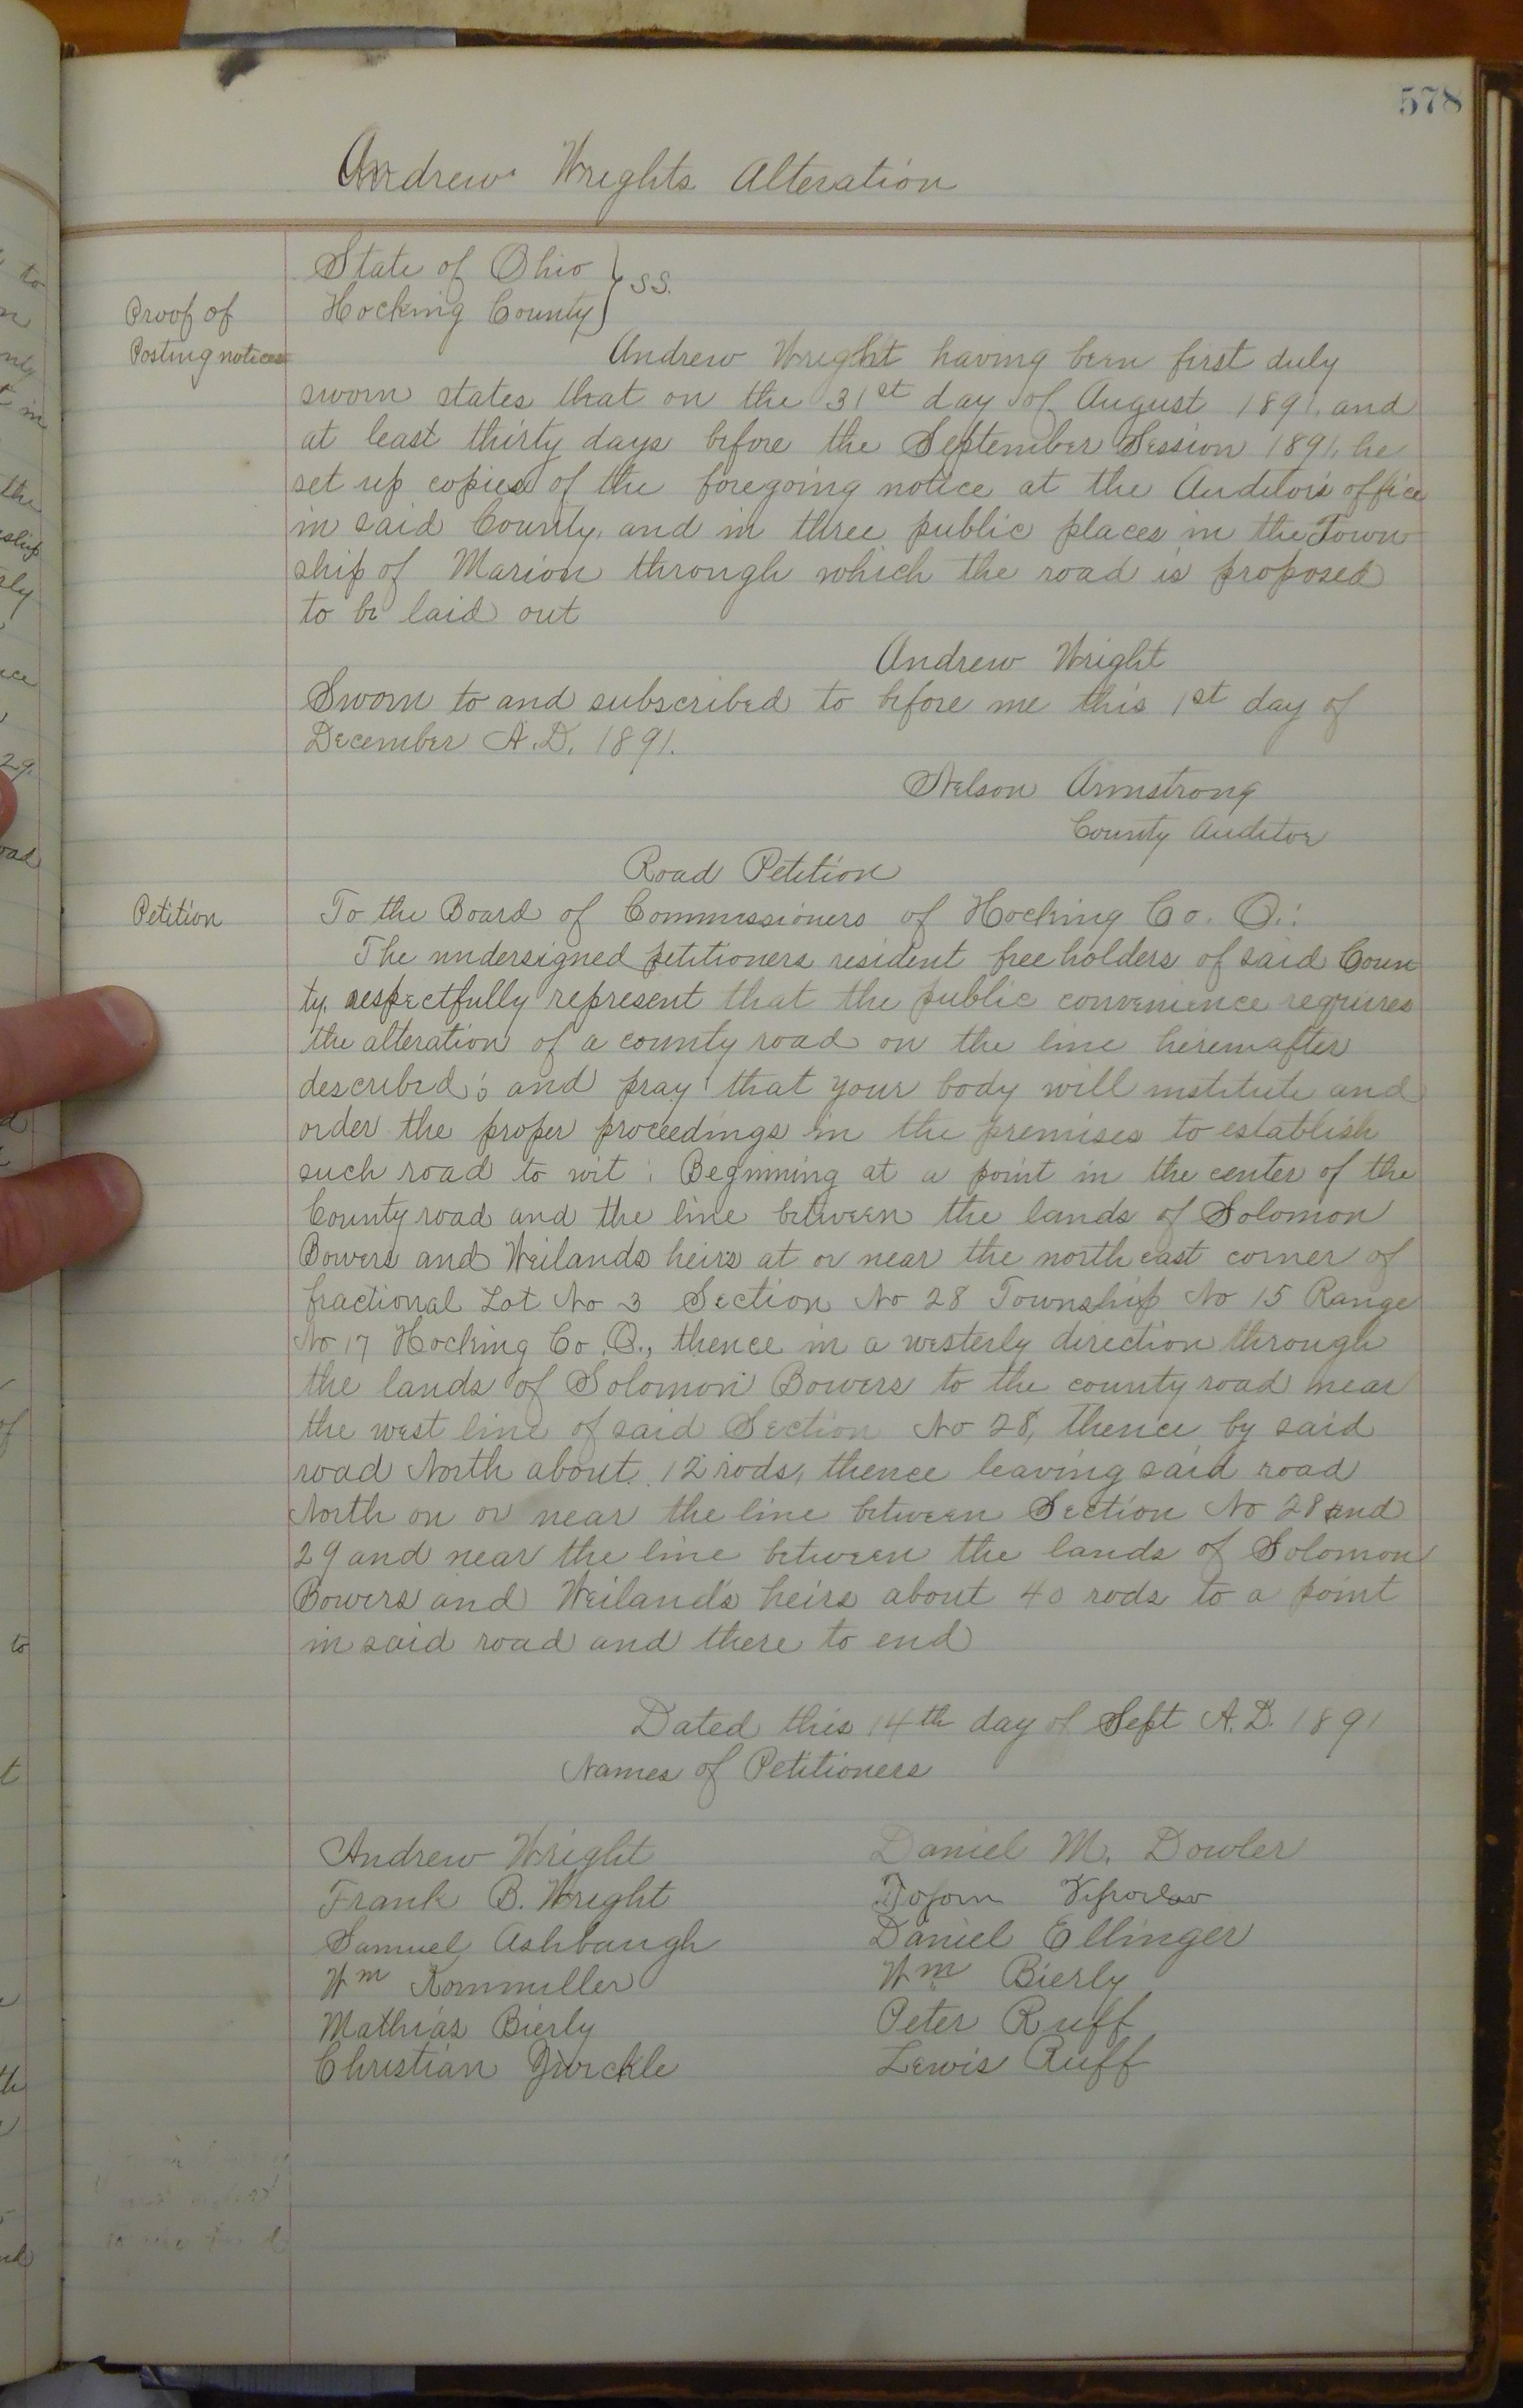 578
Andrew Wrights Alteration
State of Ohio } SS.
Hocking County
Proof of
Posting notices
Andrew Wright having been first duly
sworn states that on the 31st day of August 1891, and
at least thirty days before the September Session 1891, he
set up copies of the foregoing notice at the Auditor's office
in said County, and in three public places in the Town
ship of Marion through which the road is proposed
to be laid out
Andrew Wright
Sworn to and subscribed to before me this 1st day of
December A.D. 1891.
Nelson Armstrong
County Auditor
Road Petition
Petition
To the Board of Commissioners of Hocking Co. O.:
The undersigned petitioners resident freeholders of said Coun
ty, respectfully represent that the public convenience requires
the alteration of a county road on the line hereinafter
described; and pray that your body will institute and
order the proper proceedings in the premises to establish
such road to wit: Beginning at a point in the center of the
County road and the line between the lands of Solomon
Bowers and Weilands heirs at or near the north east corner of
fractional Lot No 3 Section No 28 Township No 15 Range
No 17 Hocking Co, O., thence in a westerly direction through
the lands of Solomon Bowers to the county road near
the west line of said Section No 28, thence by said
road North about 12 rods, thence leaving said road
North on or near the line between Section No 28 and
29 and near the line between the lands of Solomon
Bowers and Weiland's heirs about 40 rods to a point
in said road and there to end
Dated this 14th day of Sept A.D. 1891
Names of Petitioners
Andrew Wright
Daniel M. Dowler
Frank B. Wright
Samuel Ashbaugh
Daniel Ellinger
Wm Kornmiller
Wm Bierly
Mathias Bierly
Peter Ruff
Christian
Lewis Ruff